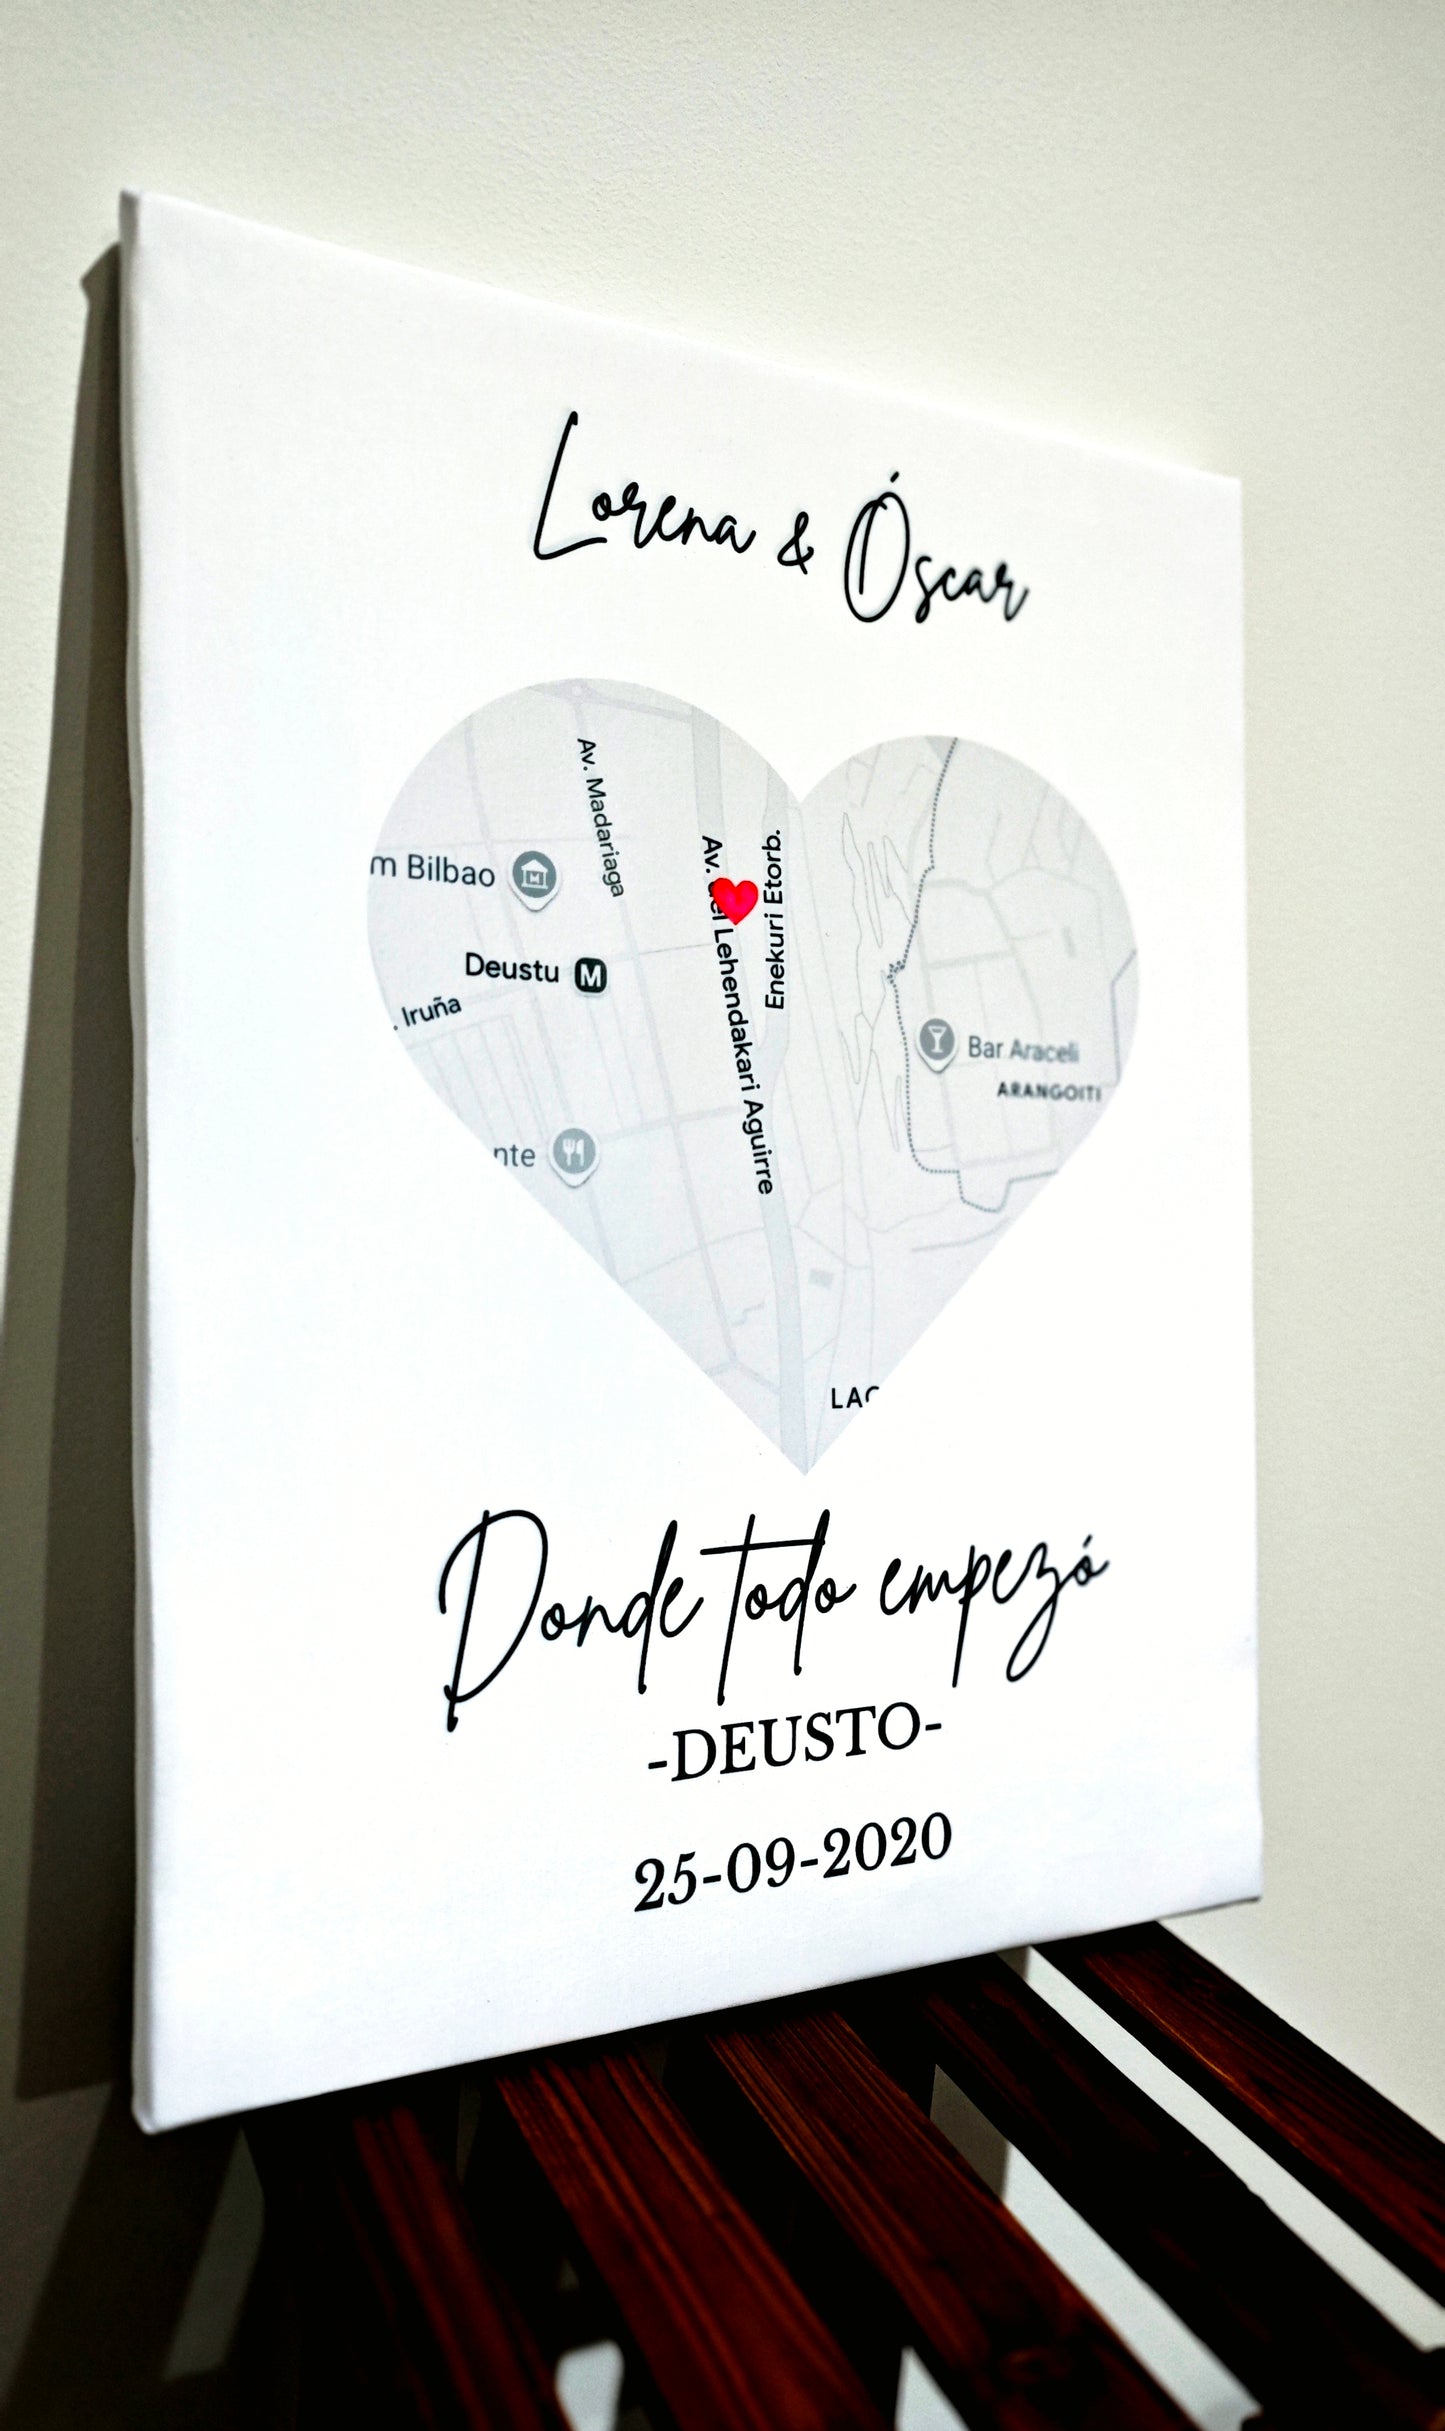 Lorena & Óscar
Av. Madariaga
m Bilbao
Av. del Lehendakari Aguirre
Enekuri Etorb.
Deustu M
. Iruña
Bar Araceli
ARANGOITI
nte
LAC
Donde todo empezó
-DEUSTO-
25-09-2020